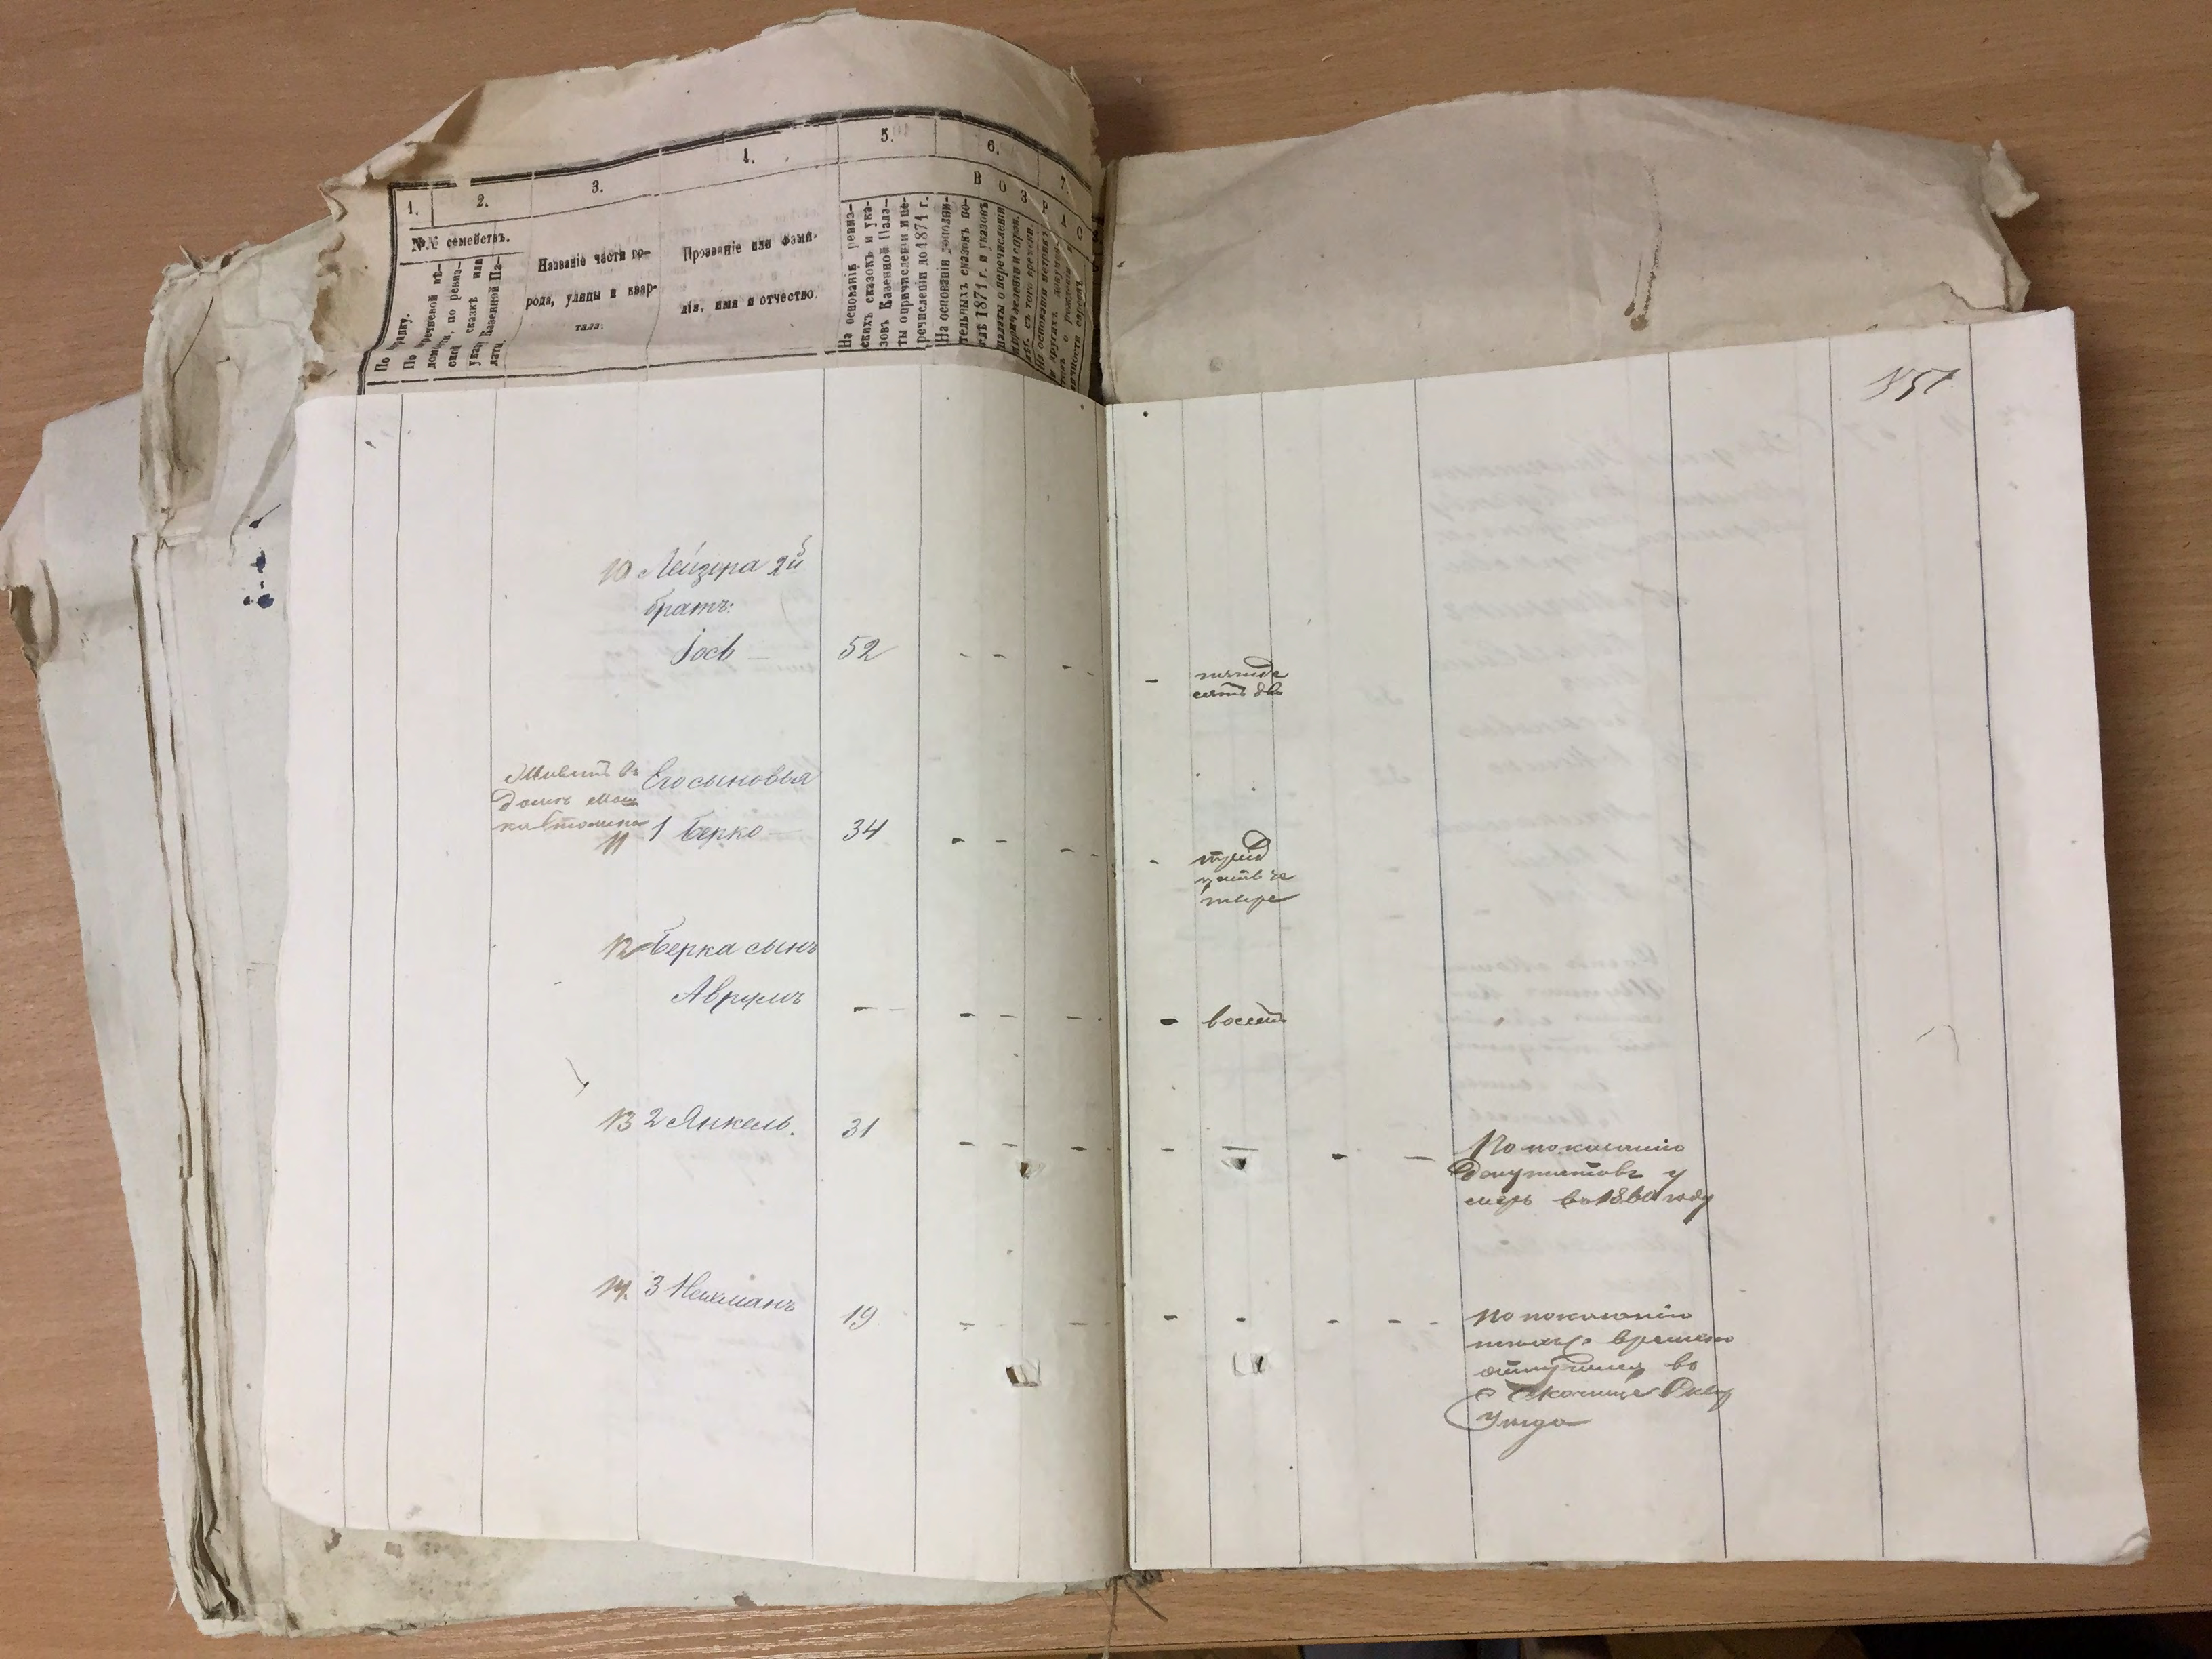 1.
2.
3.
4.
5.
6.
7.
В О З Р А С
№№ семействъ.
Названіе части го-
рода, улицы и квар-
тала.
Прозваніе или фами-
лія, имя и отчество.
На основаніи ревиз-
скихъ сказокъ и ука-
зовъ Казенной Пала-
ты о причисленіи и пе-
речисленіи до 1871 г.
На основаніи дополни-
тельныхъ сказокъ по-
слѣ 1871 г. и указовъ
палаты о перечисленіи
По порядку.
10 Лейзера 2й
братъ:
Іось — 52 - - - - - пятьде
сятъ два
Живетъ въ
домѣ Мош
ка
Его сыновья
11 1 Берко — 34 - - - - - трид
цать че
тыре
12 Берка сынъ
Аврумъ — - - - - восемь
13 2 Янкель. 31 - - - - - - -
По показанію
депутатовъ у
меръ въ 1860 году
14. 3 Нехеманъ 19 - - - - - - -
По показанію
временно
отлучился во
уѣзда